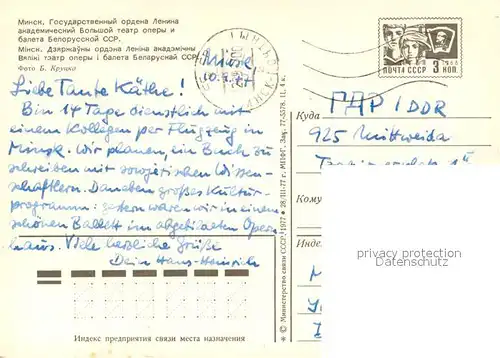 Минск. Государственный ордена Ленина
академический Большой театр оперы и
балета Белорусской ССР.
Мінск. Дзяржаўны ордэна Леніна акадэмічны
Вялікі тэатр оперы і балета Беларускай ССР.
Фото Б. Крупко
Minsk
Liebe Tante Käthe!
Bin 14 Tage dienstlich mit
einem Kollegen per Flugzeug in
Minsk. Wir planen, ein Buch zu
schreiben mit sowjetischen Wissen-
schaftlern. Daneben großes Kultur-
programm: gestern waren wir in einem
schönen Ballett im abgebildeten Opern-
haus. Viele herzliche Grüße
Dein Hans-Heinrich
Индекс предприятия связи места назначения
© Министерство связи СССР, 1977
ПОЧТА СССР 3 КОП.
Куда ГДР / DDR
925 Mittweida
Кому
Индекс
privacy protection
Datenschutz